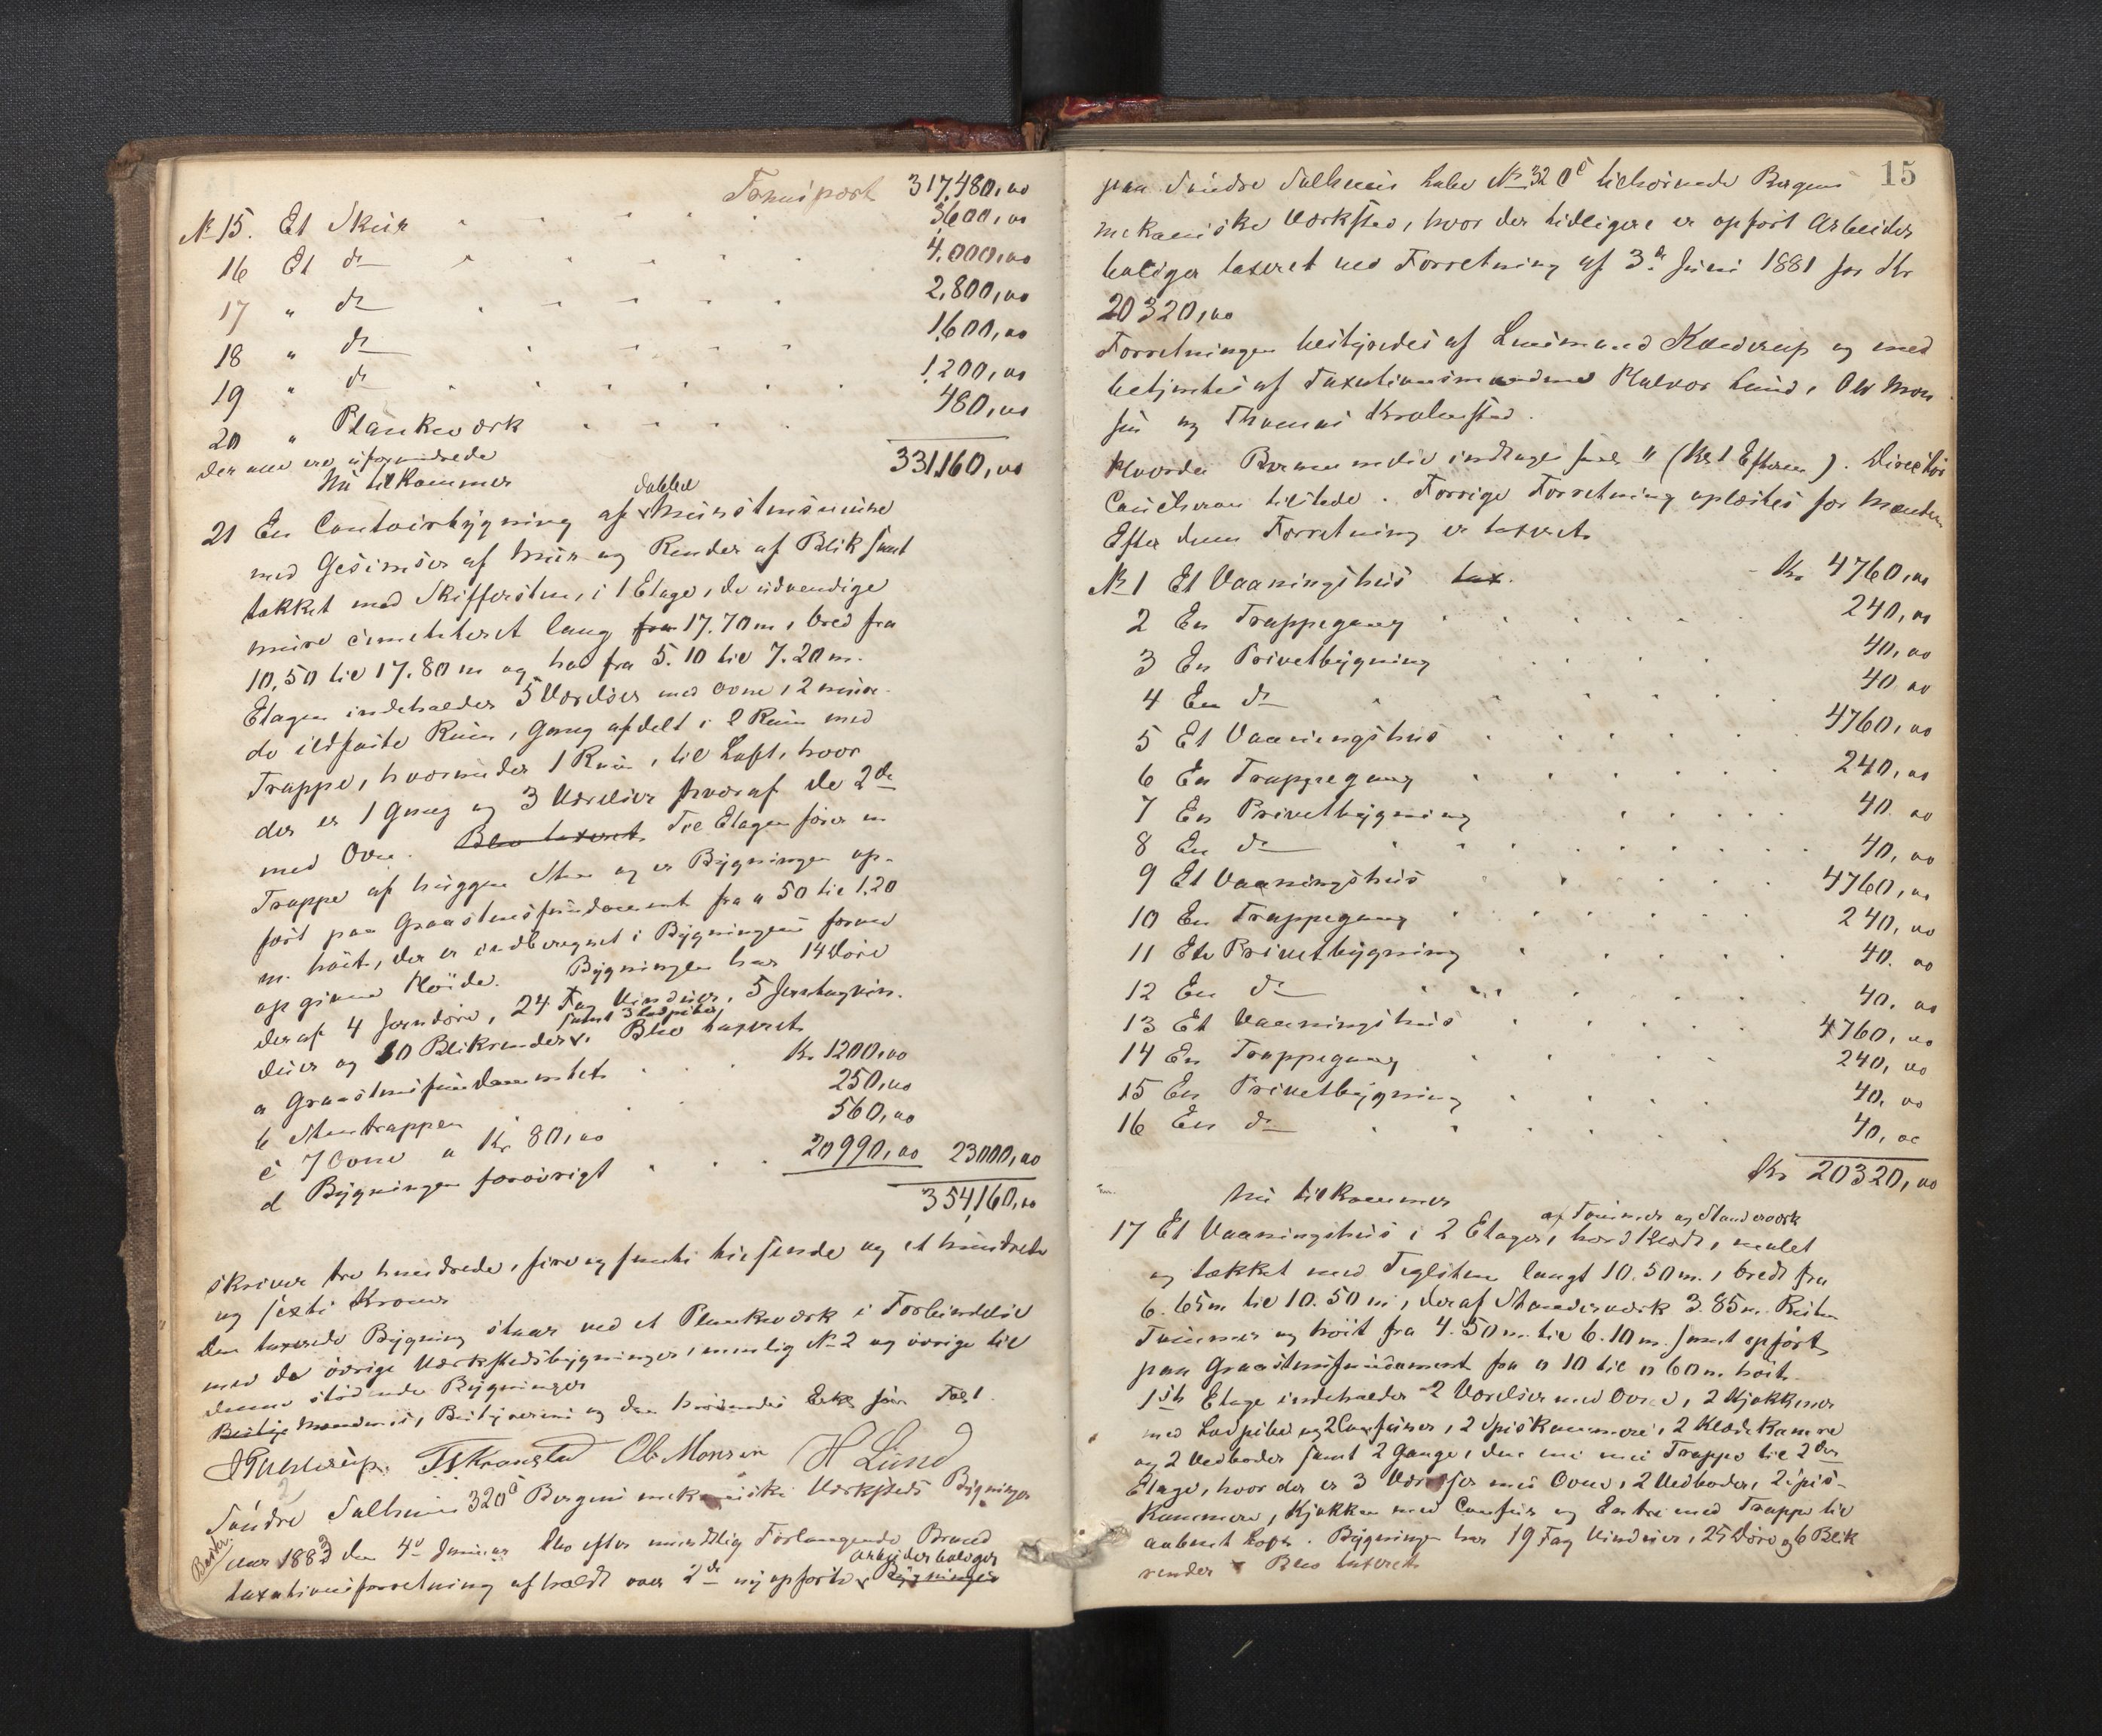 Transport 317,480,00
№ 15. Et Skur 3600,00
16 Et do 4,000,00
17 " do 2,800,00
18 " do 1600,00
19 " do 1200,00
20 " Plankeværk 480,00
der alle ere uforandrede 331,160,00
Nu tilkommer
21 En Contoirbygning af dobbel Murstensmure
med Gesimser af Mur og Render af Blik samt
takket med Skiffersten, i 1 Etage, de udvendige
mure cementeret lang fra 17.70 m, bred fra
10,50 til 17.80 m og høi fra 5.10 til 7.20 m.
Etagen indeholder 5 Værelser med ovne, 2 mure-
de ildfaste Rum, Gang afdelt i 2 Rum med
Trappe, hvorunder 1 Rum, til Loft, hvor
der er 1 Gang og 3 Værelser hvoraf de 2de
med Ovn. Blev taxeret Til Etagen fører en
Trappe af huggen Sten og er Bygningen op-
ført paa Graastensfundament fra " 50 til 1.20
m. høit, der er indberegnet i Bygningens foran
opgivne Høide. Bygningen har 14 Døre
deraf 4 Jerndøre, 24 Fag Vinduer, 5 Jernhagvin-
duer og 10 Blikrender samt 3 Ledpiber. Blev taxeret
a Graastensfundamentet Kr 1200,00
b Stentrappen 250,00
c 7 Ovne a Kr 80,00 560,00
d Bygningen forøvrigt 20990,00 23000,00
354,160,00
skriver tre hundrede, fire og femti tusende og et hundrede
og sexti Kroner
Den taxerede Bygning staar ved et Plankeværk i Forbindelse
med de øvrige Værkstedsbygninger, nemlig № 2 og øvrige til
denne stødende Bygninger
Bestyr Mændenes, Bestyrerens og den
Ths Kronstad Ole Monsen H Lund
Søndre Solheim 320 c Bergens mekaniske Værksteds Bygninger
Aar 1883 den 4de Januar blev efter mundtlig Forlangende Brand
taxationsforretning afholdt over 2de nyopførte Arbeiderboliger Bygninger
15
paa Søndre Solheim Labe № 320 c tilhørende Bergens
mekaniske Værksted, hvor der tidligere er opført Arbeider
boliger taxeret ved Forretning af 3de Juni 1881 for Kr
20320,00
Forretningen bestyredes af Lensmand og med
betjentes af Taxationsmændene Halvor Lund, Ole Mon
sen og Thomas Kronstad.
Director
tilstede. Forrige Forretning oplæstes for Mændene
Efter denne Forretning er taxeret
№ 1 Et Vaaningshus tax. Kr 4760,00
2 En Trappegang 240,00
3 En Privetbygning 40,00
4 En do 40 00
5 Et Vaaningshus 4760,00
6 En Trappegang 240,00
7 En Privetbygning 40 00
8 En do 40,00
9 Et Vaaningshus 4760,00
10 En Trappegang 240,00
11 En Privetbygning 40. 00
12 En do 40. 00
13 Et Vaaningshus 4760,00
14 En Trappegang 240,00
15 En Privetbygning 40,00
16 En do 40,00
Kr 20320,00
Nu tilkommer
17 Et Vaaningshus i 2 Etager, af Tømmer og Standerværk bordklædt, malet
og tækket med Teglsten langt 10.50 m., bredt fra
6.65 m til 10.50 m, deraf Standerværk 3.85 m. Resten
Tømmer og høit fra 4.50 m. til 6.10 m. samt opført
paa Graastensfundament fra " 10 til " 60 m. høit.
1ste Etage indeholder 2 Værelser med Ovne, 2 Kjøkkener
med Ledpiber og 2 Comfurer, 2 Spiskammere, 2 Klædekamre
og 2 Vedboder samt 2 Gange, den ene med Trappe til 2den
Etage, hvor der er 3 Værelser med Ovne, 2 Vedboder, 2 spis-
kammere, Kjøkken med Comfur og Entre med Trappe til
aabent Loft. Bygningen har 19 Fag Vinduer, 25 Døre og 6 Blik
render Blev taxeret